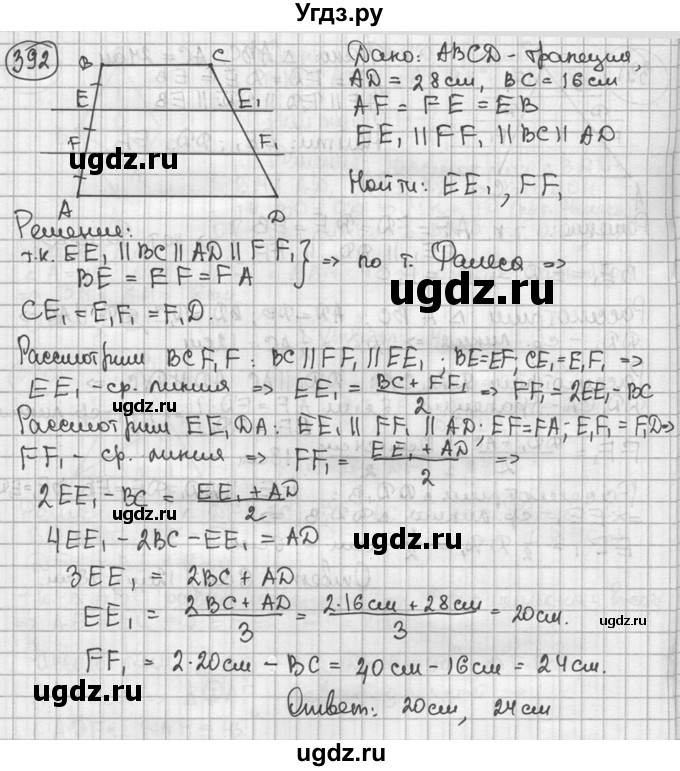 Угдз.ру
392
B
C
E
E₁
F
F₁
A
D
Дано: ABCD - трапеция,
AD = 28 см, BC = 16 см
AF = FE = EB
EE₁ || FF₁ || BC || AD
Найти: EE₁, FF₁
ugdz.ru
Решение:
т.к. EE₁ || BC || AD || FF₁
BE = EF = FA } => по т. Фалеса =>
ugdz.ru
CE₁ = E₁F₁ = F₁D.
Рассмотрим BCF₁F: BC || FF₁ || EE₁; BE=EF, CE₁=E₁F₁ =>
EE₁ - ср. линия => EE₁ = (BC + FF₁)/2 => FF₁ = 2EE₁ - BC
ugdz.ru
Рассмотрим EE₁DA: EE₁ || FF₁ || AD; EF=FA; E₁F₁ = F₁D =>
FF₁ - ср. линия => FF₁ = (EE₁ + AD)/2 =>
ugdz.ru
2EE₁ - BC = (EE₁ + AD)/2
ugdz.ru
4EE₁ - 2BC - EE₁ = AD
ugdz.ru
3EE₁ = 2BC + AD
EE₁ = (2BC + AD)/3 = (2·16см + 28см)/3 = 20см.
ugdz.ru
FF₁ = 2·20см - BC = 40см - 16см = 24см.
ugdz.ru
ugdz.ru
Ответ: 20см, 24см
ugdz.ru